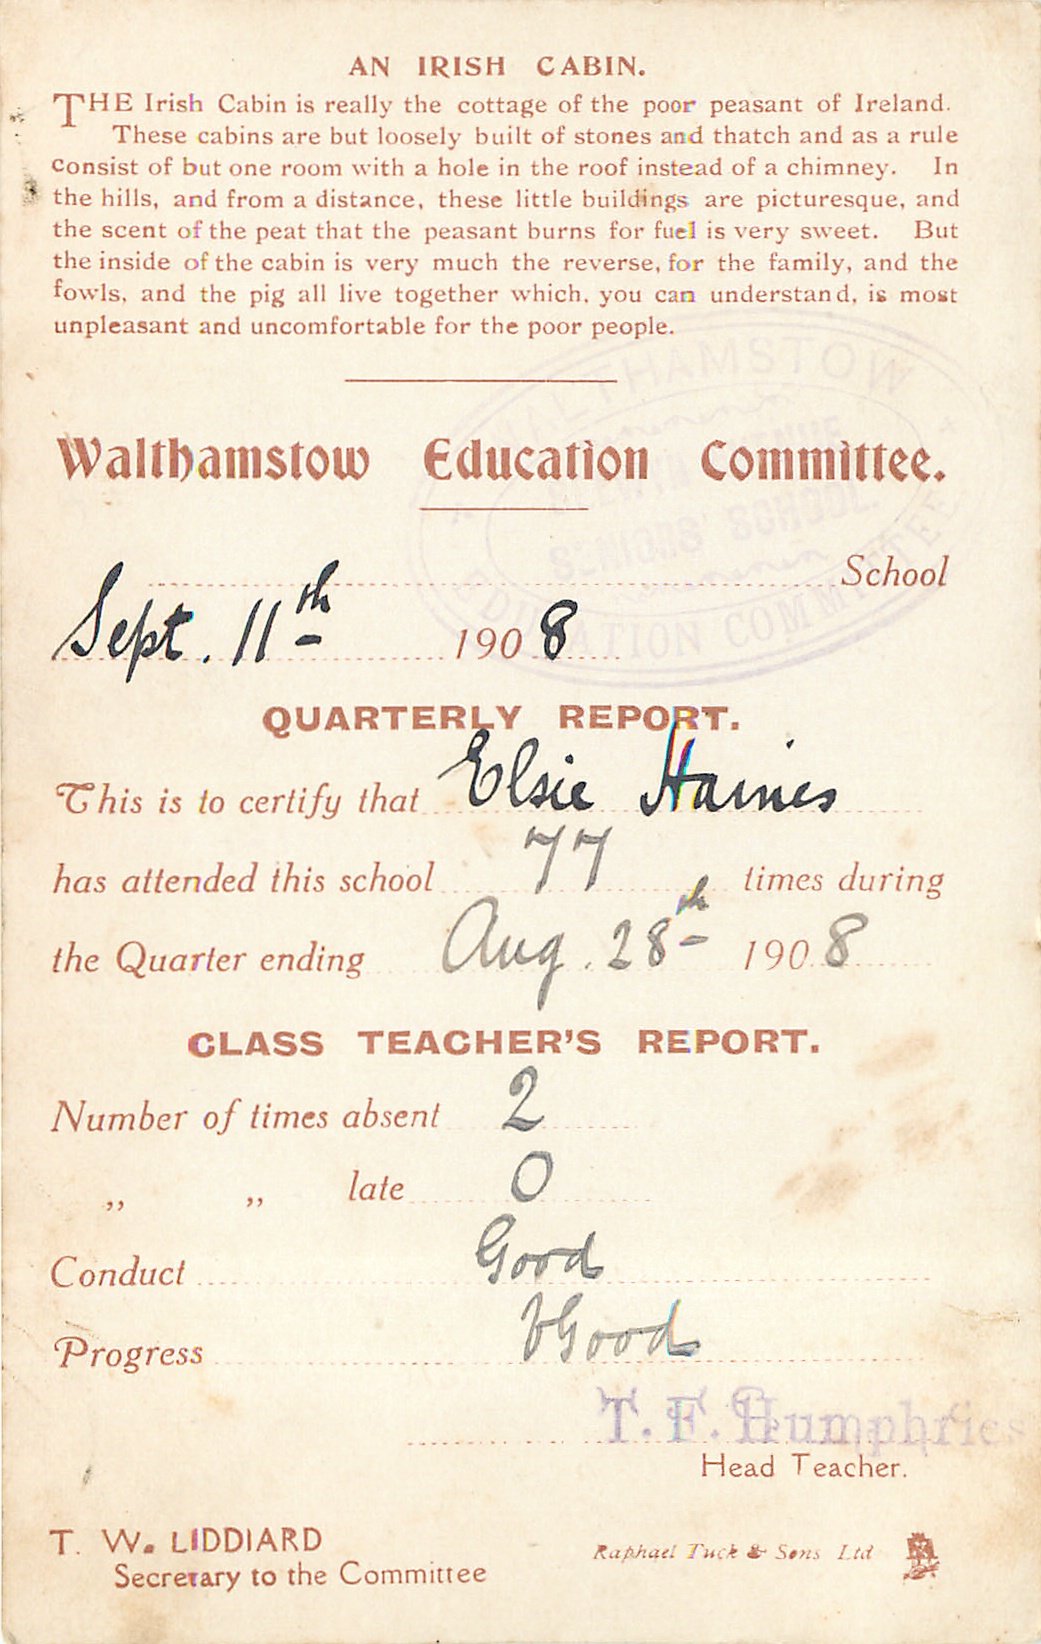 AN IRISH CABIN.
THE Irish Cabin is really the cottage of the poor peasant of Ireland.
These cabins are but loosely built of stones and thatch and as a rule
consist of but one room with a hole in the roof instead of a chimney. In
the hills, and from a distance, these little buildings are picturesque, and
the scent of the peat that the peasant burns for fuel is very sweet. But
the inside of the cabin is very much the reverse, for the family, and the
fowls, and the pig all live together which, you can understand, is most
unpleasant and uncomfortable for the poor people.
WALTHAMSTOW
Walthamstow Education Committee.
SENIORS' SCHOOL
EDUCATION COMMITTEE
School
Sept. 11th 1908
QUARTERLY REPORT.
This is to certify that Elsie Haines
has attended this school 77 times during
the Quarter ending Aug. 28th 1908
CLASS TEACHER'S REPORT.
Number of times absent 2
„ „ late 0
Conduct Good
Progress VGood
T. F. Humphries
Head Teacher.
T. W. LIDDIARD
Secretary to the Committee
Raphael Tuck & Sons Ltd